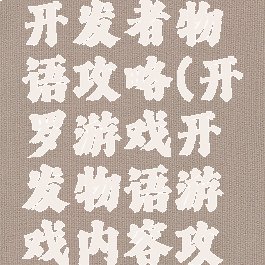 开发者物
语攻略(开
罗游戏开
发物语游
戏内答攻